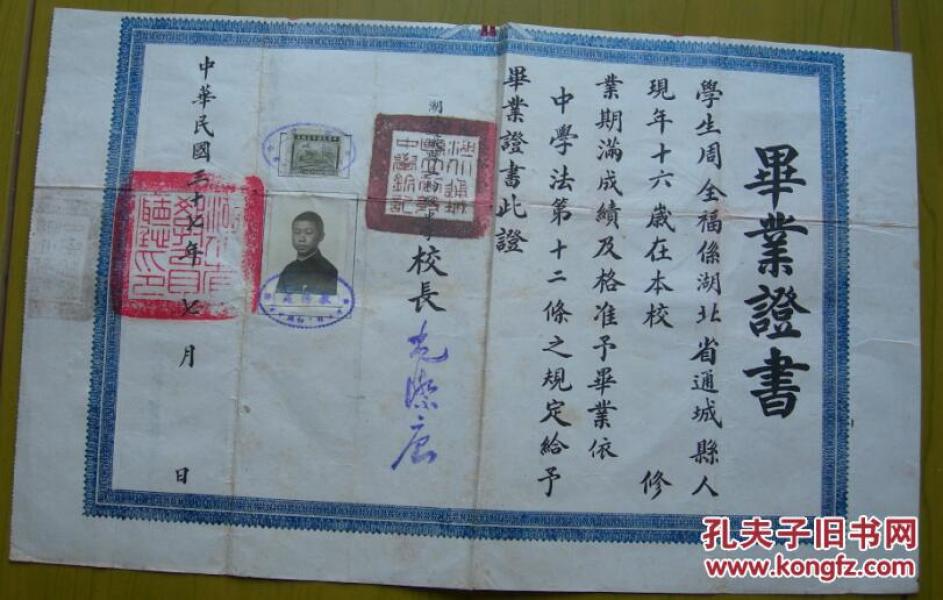 畢業證書
學生周全福係湖北省通城縣人
現年十六歲在本校 修
業期滿成績及格准予畢業依
中學法第十二條之規定給予
畢業證書此證
校長
中華民國三十七年 七 月 日
孔夫子旧书网
www.kongfz.com